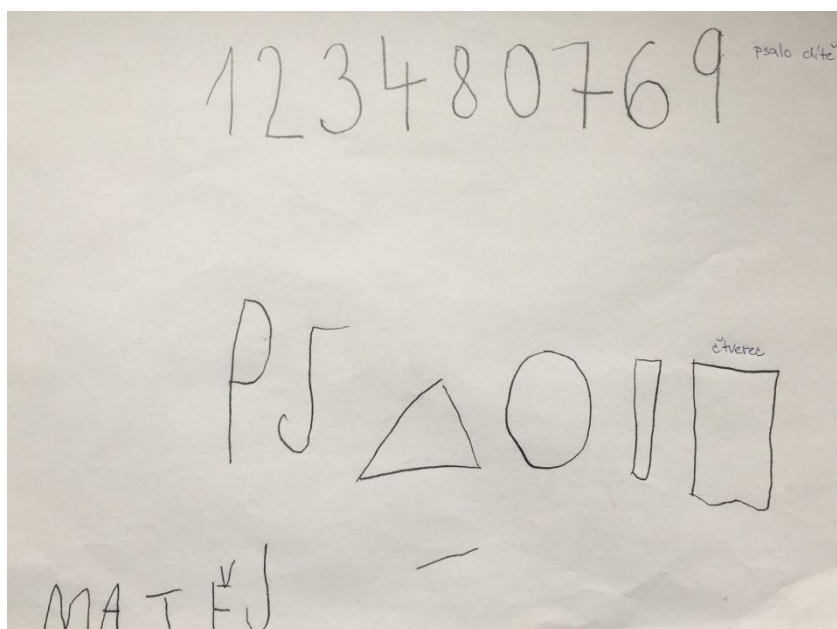 123480769 psalo dítě
PJ
čtverec
MATĚJ